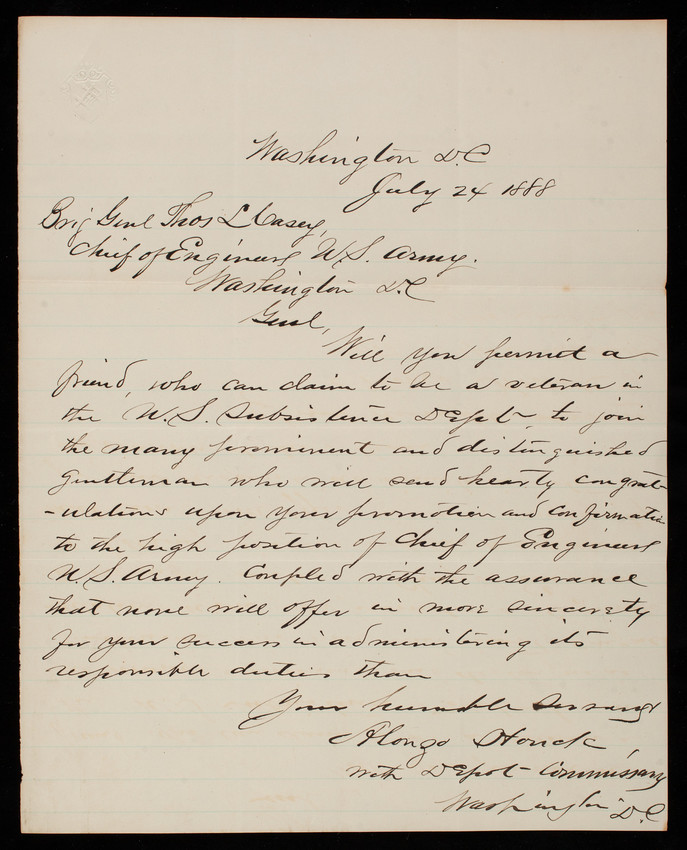 Washington D.C
July 24 1888
Brig Genl Thos L Casey,
Chief of Engineers U.S. Army.
Washington D.C
Genl,
Will you permit a
friend, who can claim to be a veteran in
the U.S. Subsistence Dept, to join
the many prominent and distinguished
gentleman who will send hearty congrat-
-ulations upon your promotion and confirmation
to the high position of Chief of Engineers
U.S. Army. Coupled with the assurance
that none will offer in more sincerety
for your success in administering its
responsible duties than
Your humble servant
Alonzo Houck,
with Depot Commissary
Washington D.C